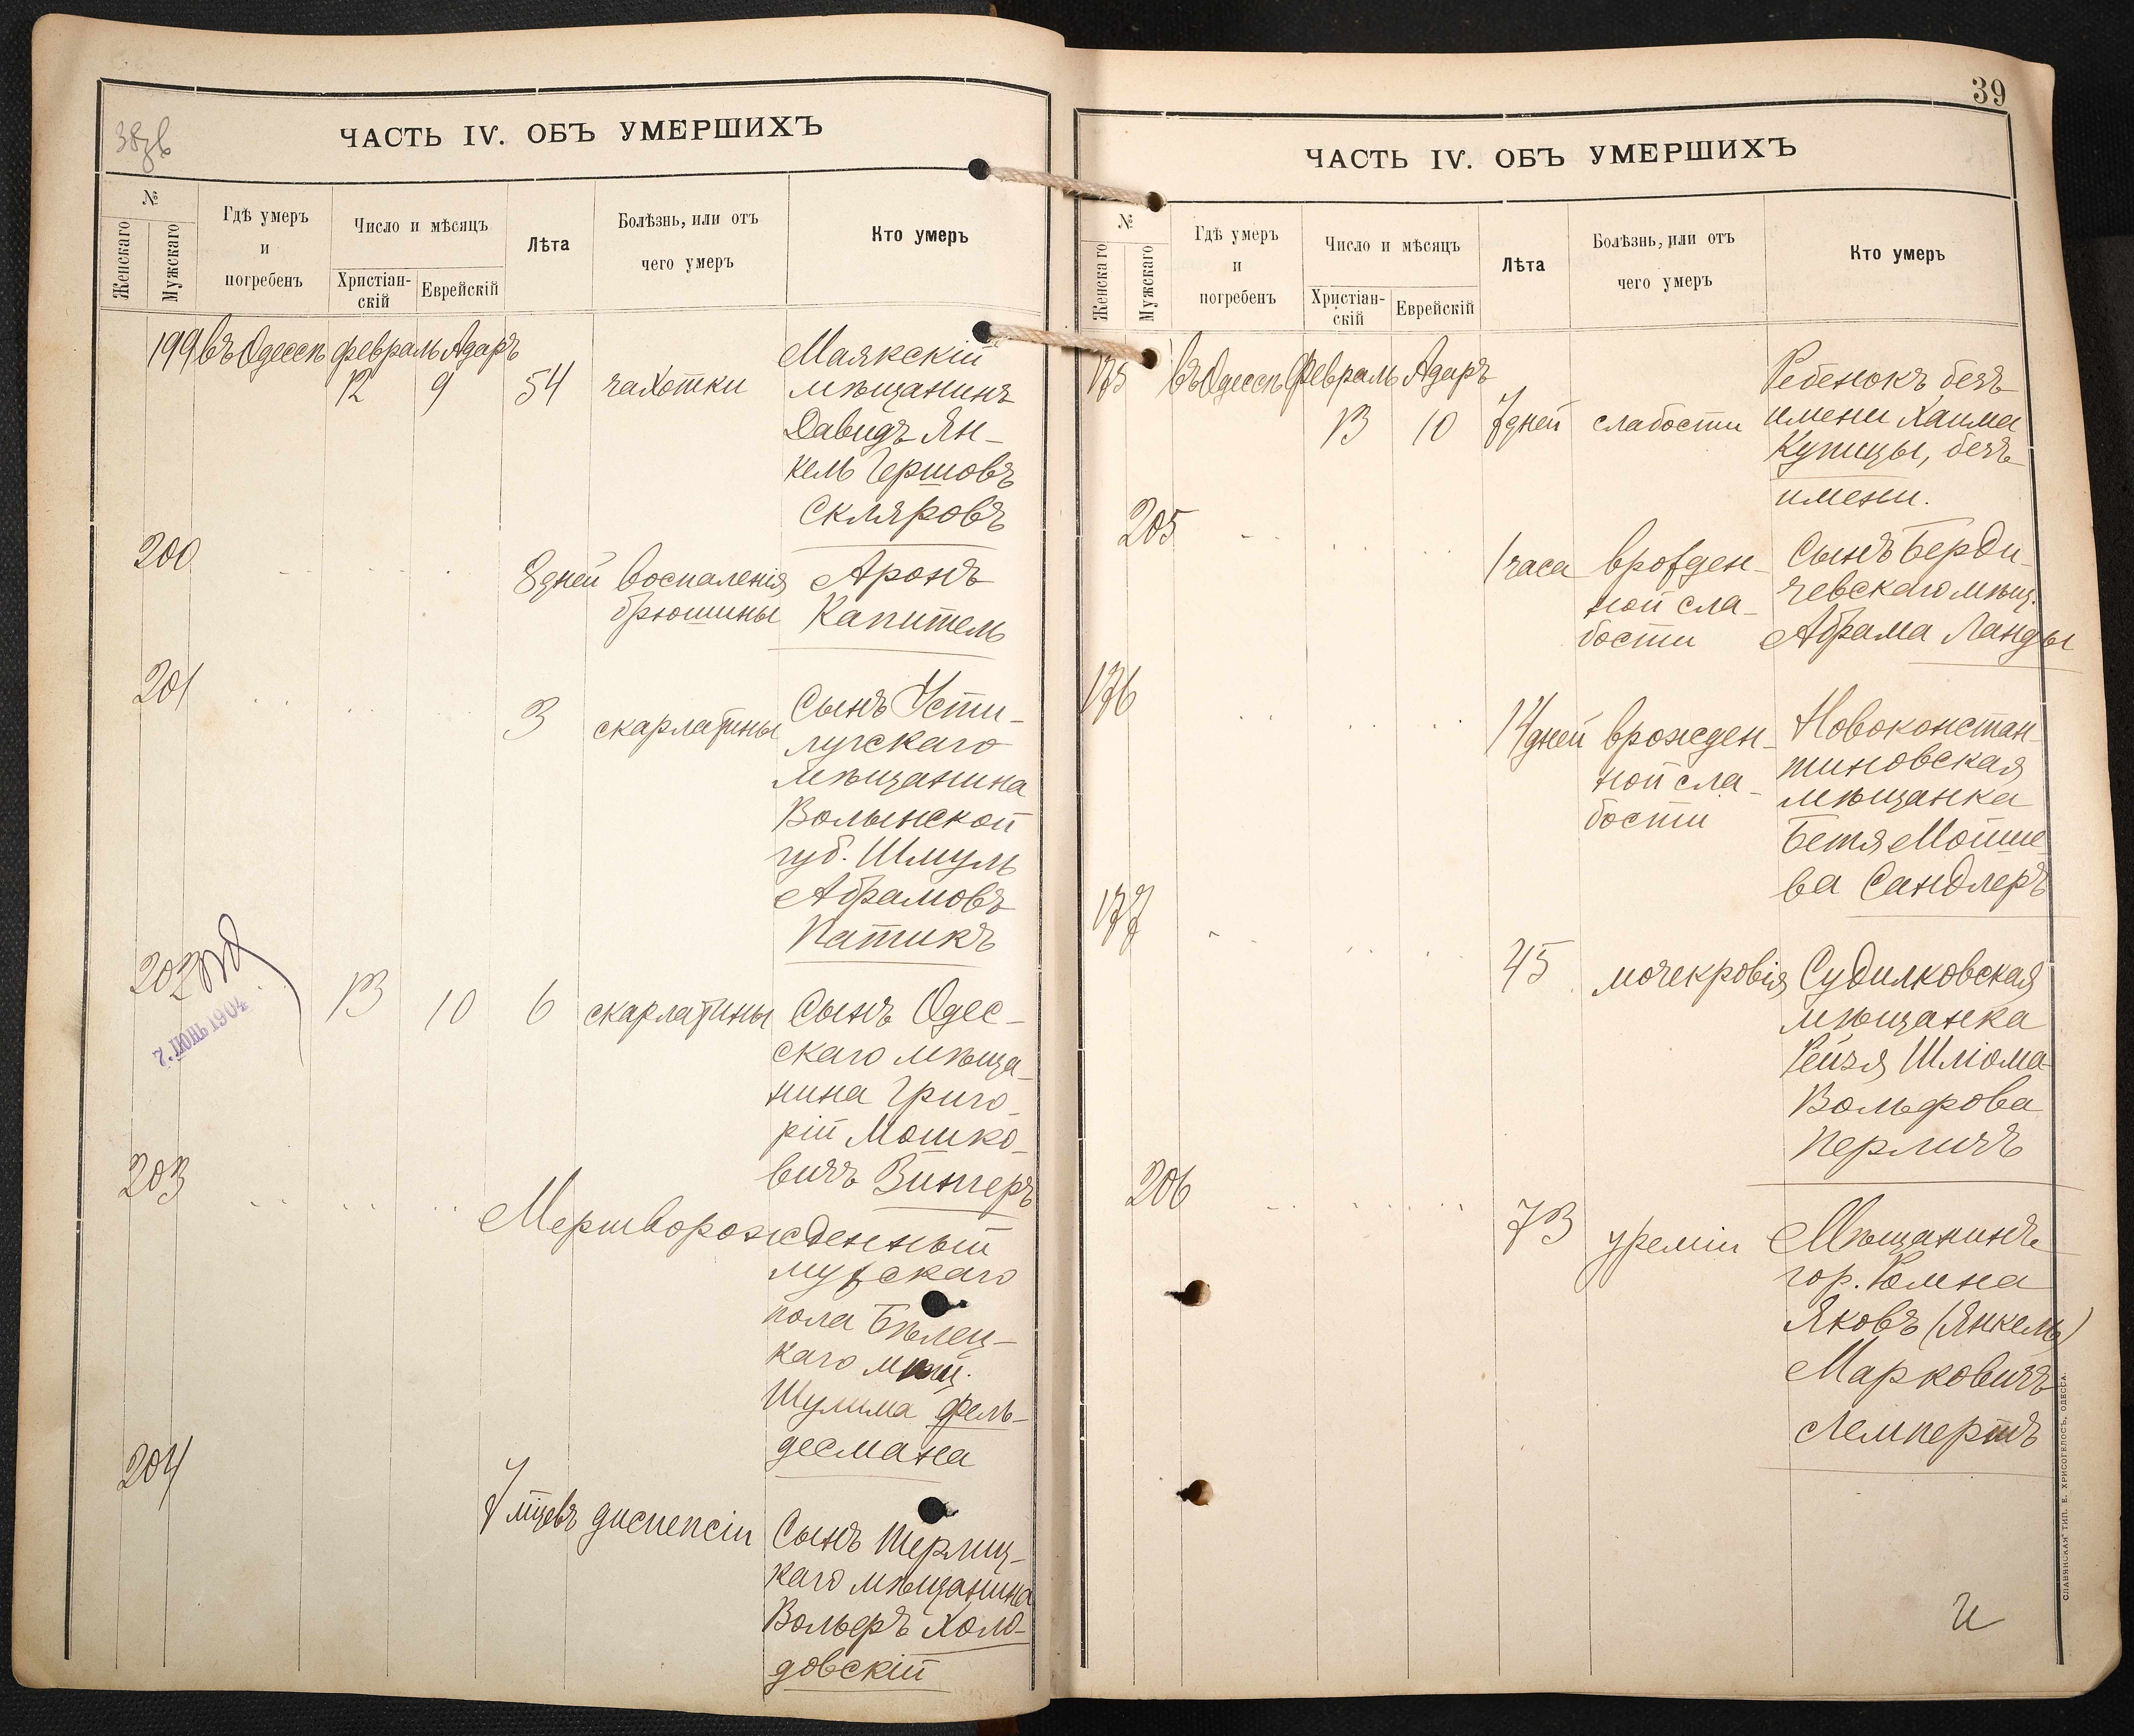 38зв
ЧАСТЬ IV. ОБЪ УМЕРШИХЪ
№
Женскаго
Мужскаго
Гдѣ умеръ
и
погребенъ
Число и мѣсяцъ
Христіан-
скій
Еврейскій
Лѣта
Болѣзнь, или отъ
чего умеръ
Кто умеръ
199 въ Одессѣ февраль Адаръ
12 9 54 чахотки
Маякскій
мѣщанинъ
Давидъ Ян-
кель Гершовъ
Скляровъ
200 8 дней воспаленія
брюшины
Аронъ
Капитель
201 3 скарлатины
Сынъ Усти-
лугскаго
мѣщанина
Волынской
губ. Шмуль
Абрамовъ
Патикъ
202
7. ІЮНЬ 1904
13 10 6 скарлатины
Сынъ Одес-
скаго мѣща-
нина Григо-
рій Мошко-
вичъ Вингеръ
203 Мертворожденный
мужскаго
пола Бѣлец-
каго мѣщ.
Шулима Фель-
десмана
204 7 мцевъ диспепсіи
Сынъ
каго мѣщанина
Вольфъ Холо-
довскій
39
ЧАСТЬ IV. ОБЪ УМЕРШИХЪ
№
Женскаго
Мужскаго
Гдѣ умеръ
и
погребенъ
Число и мѣсяцъ
Христіан-
скій
Еврейскій
Лѣта
Болѣзнь, или отъ
чего умеръ
Кто умеръ
175 въ Одессѣ Февраль Адаръ
13 10 7 дней слабости
Ребенокъ безъ
имени Хаима
Купицы, безъ
имени.
205 1 часа врожден-
ной сла-
бости
Сынъ Берди-
чевскаго мѣщ.
Абрама Ланды
176 14 дней врожден-
ной сла-
бости
Новоконстан-
тиновская
мѣщанка
Бетя Мойше-
ва Сандлеръ
177 45 мочекровія
Судилковская
мѣщанка
Рейзя Шліома-
Вольфова
Перличъ
206 73 уреміи
Мѣщанинъ
гор. Ромна
Яковъ (Янкель)
Марковичъ
Лемпертъ
СЛАВЯНСКАЯ" ТИП. Е. ХРИСОГЕЛОСЪ, ОДЕССА.